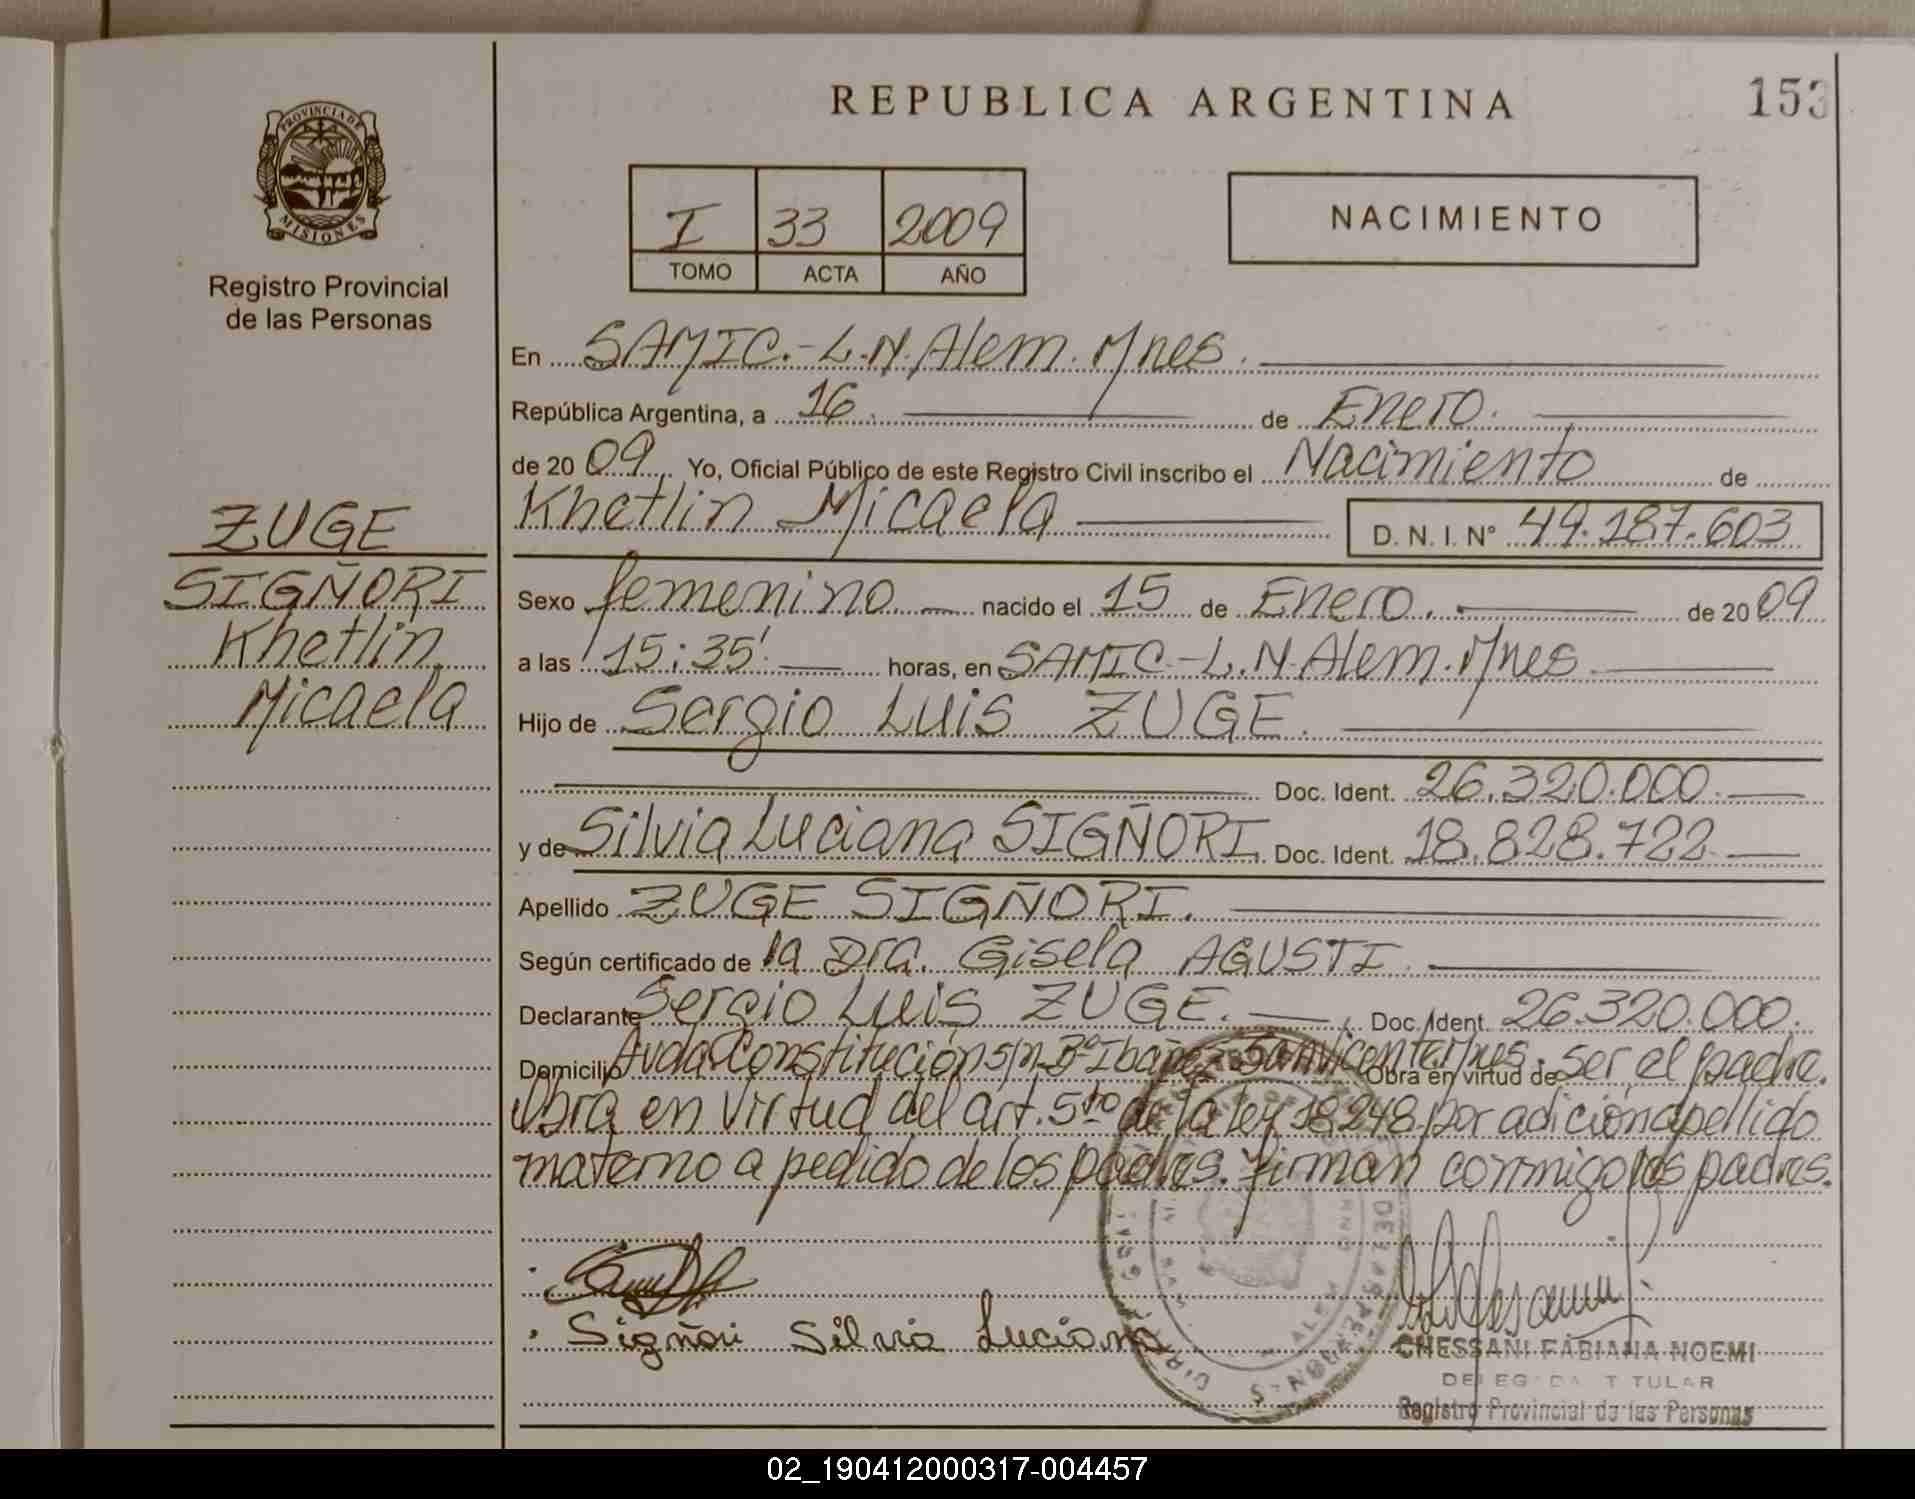 REPUBLICA ARGENTINA
153
PROVINCIA DE
MISIONES
Registro Provincial
de las Personas
I 33 2009
TOMO ACTA AÑO
NACIMIENTO
En SAMIC.-L.N.Alem.Mnes.
República Argentina, a 16. de Enero.
de 2009. Yo, Oficial Público de este Registro Civil inscribo el Nacimiento de
Khetlin Micaela D. N. I. N° 49.187.603
ZUGE
SIGÑORI
Khetlin
Micaela
Sexo femenino nacido el 15 de Enero. de 2009
a las 15:35' horas, en SAMIC.-L.N.Alem.Mnes
Hijo de Sergio Luis ZUGE.
Doc. Ident. 26.320.000.
y de Silvia Luciana SIGÑORI. Doc. Ident. 18.828.722
Apellido ZUGE SIGÑORI.
Según certificado de la Dra. Gisela AGUSTI.
Declarante Sergio Luis ZUGE. Doc. Ident. 26.320.000.
Domicilio Avda Constitución s/n B° Ibañez San Vicente Mnes. Obra en virtud de Ser el padre.
Obra en virtud del art. 5to de la ley 18248 por adición apellido
materno a pedido de los padres. Firman conmigo los padres.
Sigñori Silvia Luciana
CHESSANI FABIANA NOEMI
DELEGADA TITULAR
Registro Provincial de las Personas
02_190412000317-004457